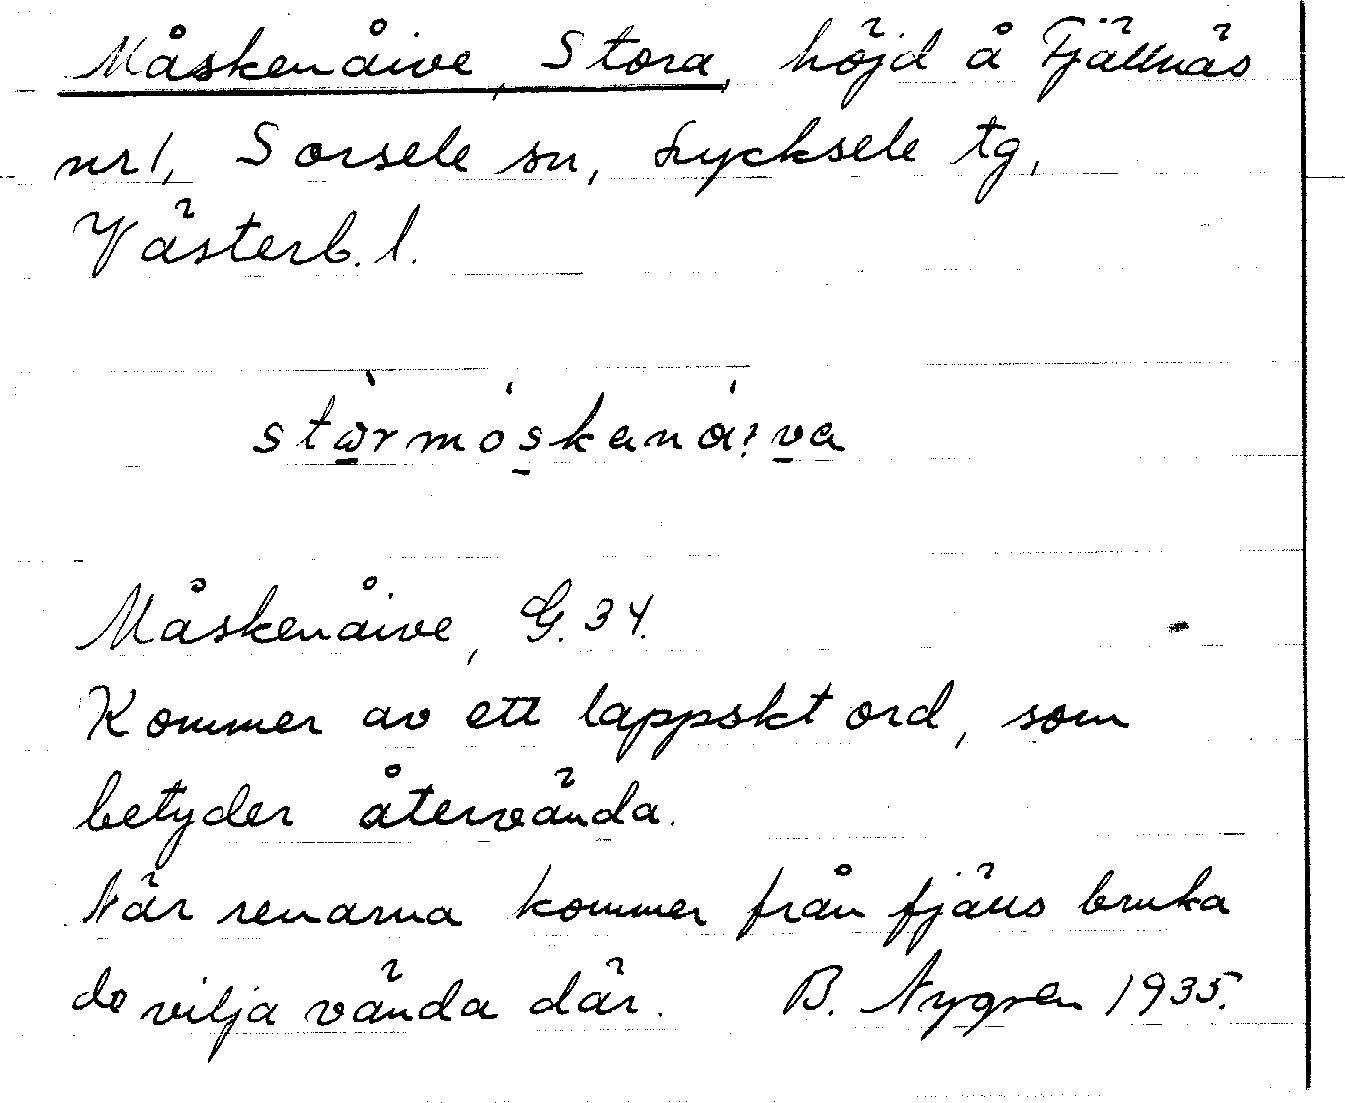 Måskenåive, Stora, höjd å Fjällnäs
nr 1, Sorsele sn, Lycksele tg,
Västerb. l.
stò̱rmós̱kanái̯v̱a
Måskenåive, G. 34.
Kommer av ett lappskt ord, som
betyder återvända.
När renarna kommer från fjälls bruka
de vilja vända där. B. Nygren 1935.